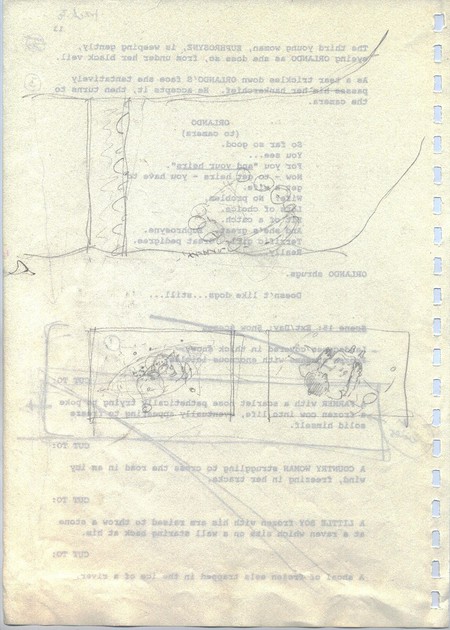 13
The third young woman, EUPHROSYNE, is weeping gently,
eyeing ORLANDO as she does so, from under her black veil.
As a tear trickles down ORLANDO'S face she tentatively
passes him her handkerchief. He accepts it, then turns to
the camera.
ORLANDO
(to camera)
So far so good.
You see...
For you "and your heirs".
Now - to get heirs - you have to
get a wife.
Wife! No problem.
Lots of choice.
Bit of a catch.
And she's great. Euphrosyne.
Terrific girl. Great pedigree.
Really.
ORLANDO shrugs.
Doesn't like dogs...still...
Scene 15: Ext/Day. Snow
covered in thick snow
with enormous
CUT TO:
FARMER with a scarlet nose pathetically trying to poke
a frozen cow into life, eventually appearing to freeze
solid himself.
CUT TO:
A COUNTRY WOMAN struggling to cross the road in an icy
wind, freezing in her tracks.
CUT TO:
A LITTLE BOY frozen with his arm raised to throw a stone
at a raven which sits on a wall staring back at him.
CUT TO:
A shoal of frozen eels trapped in the ice of a river.